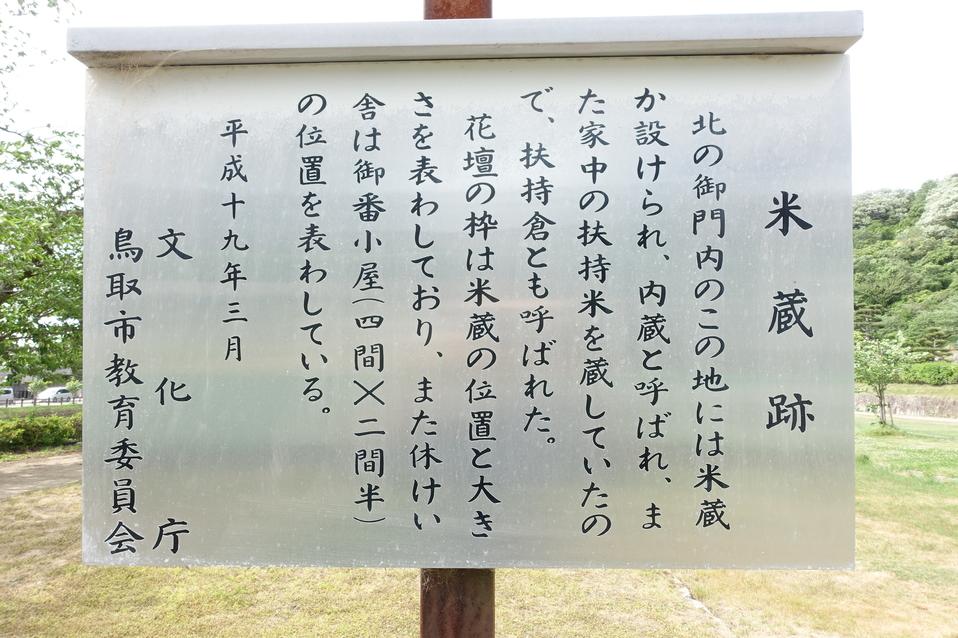 米蔵跡
北の御門内のこの地には米蔵
か設けられ、内蔵と呼ばれ、ま
た家中の扶持米を蔵していたの
で、扶持倉とも呼ばれた。
花壇の枠は米蔵の位置と大き
さを表わしており、また休けい
舎は御番小屋(四間×二間半)
の位置を表わしている。
平成十九年三月
文化庁
鳥取市教育委員会